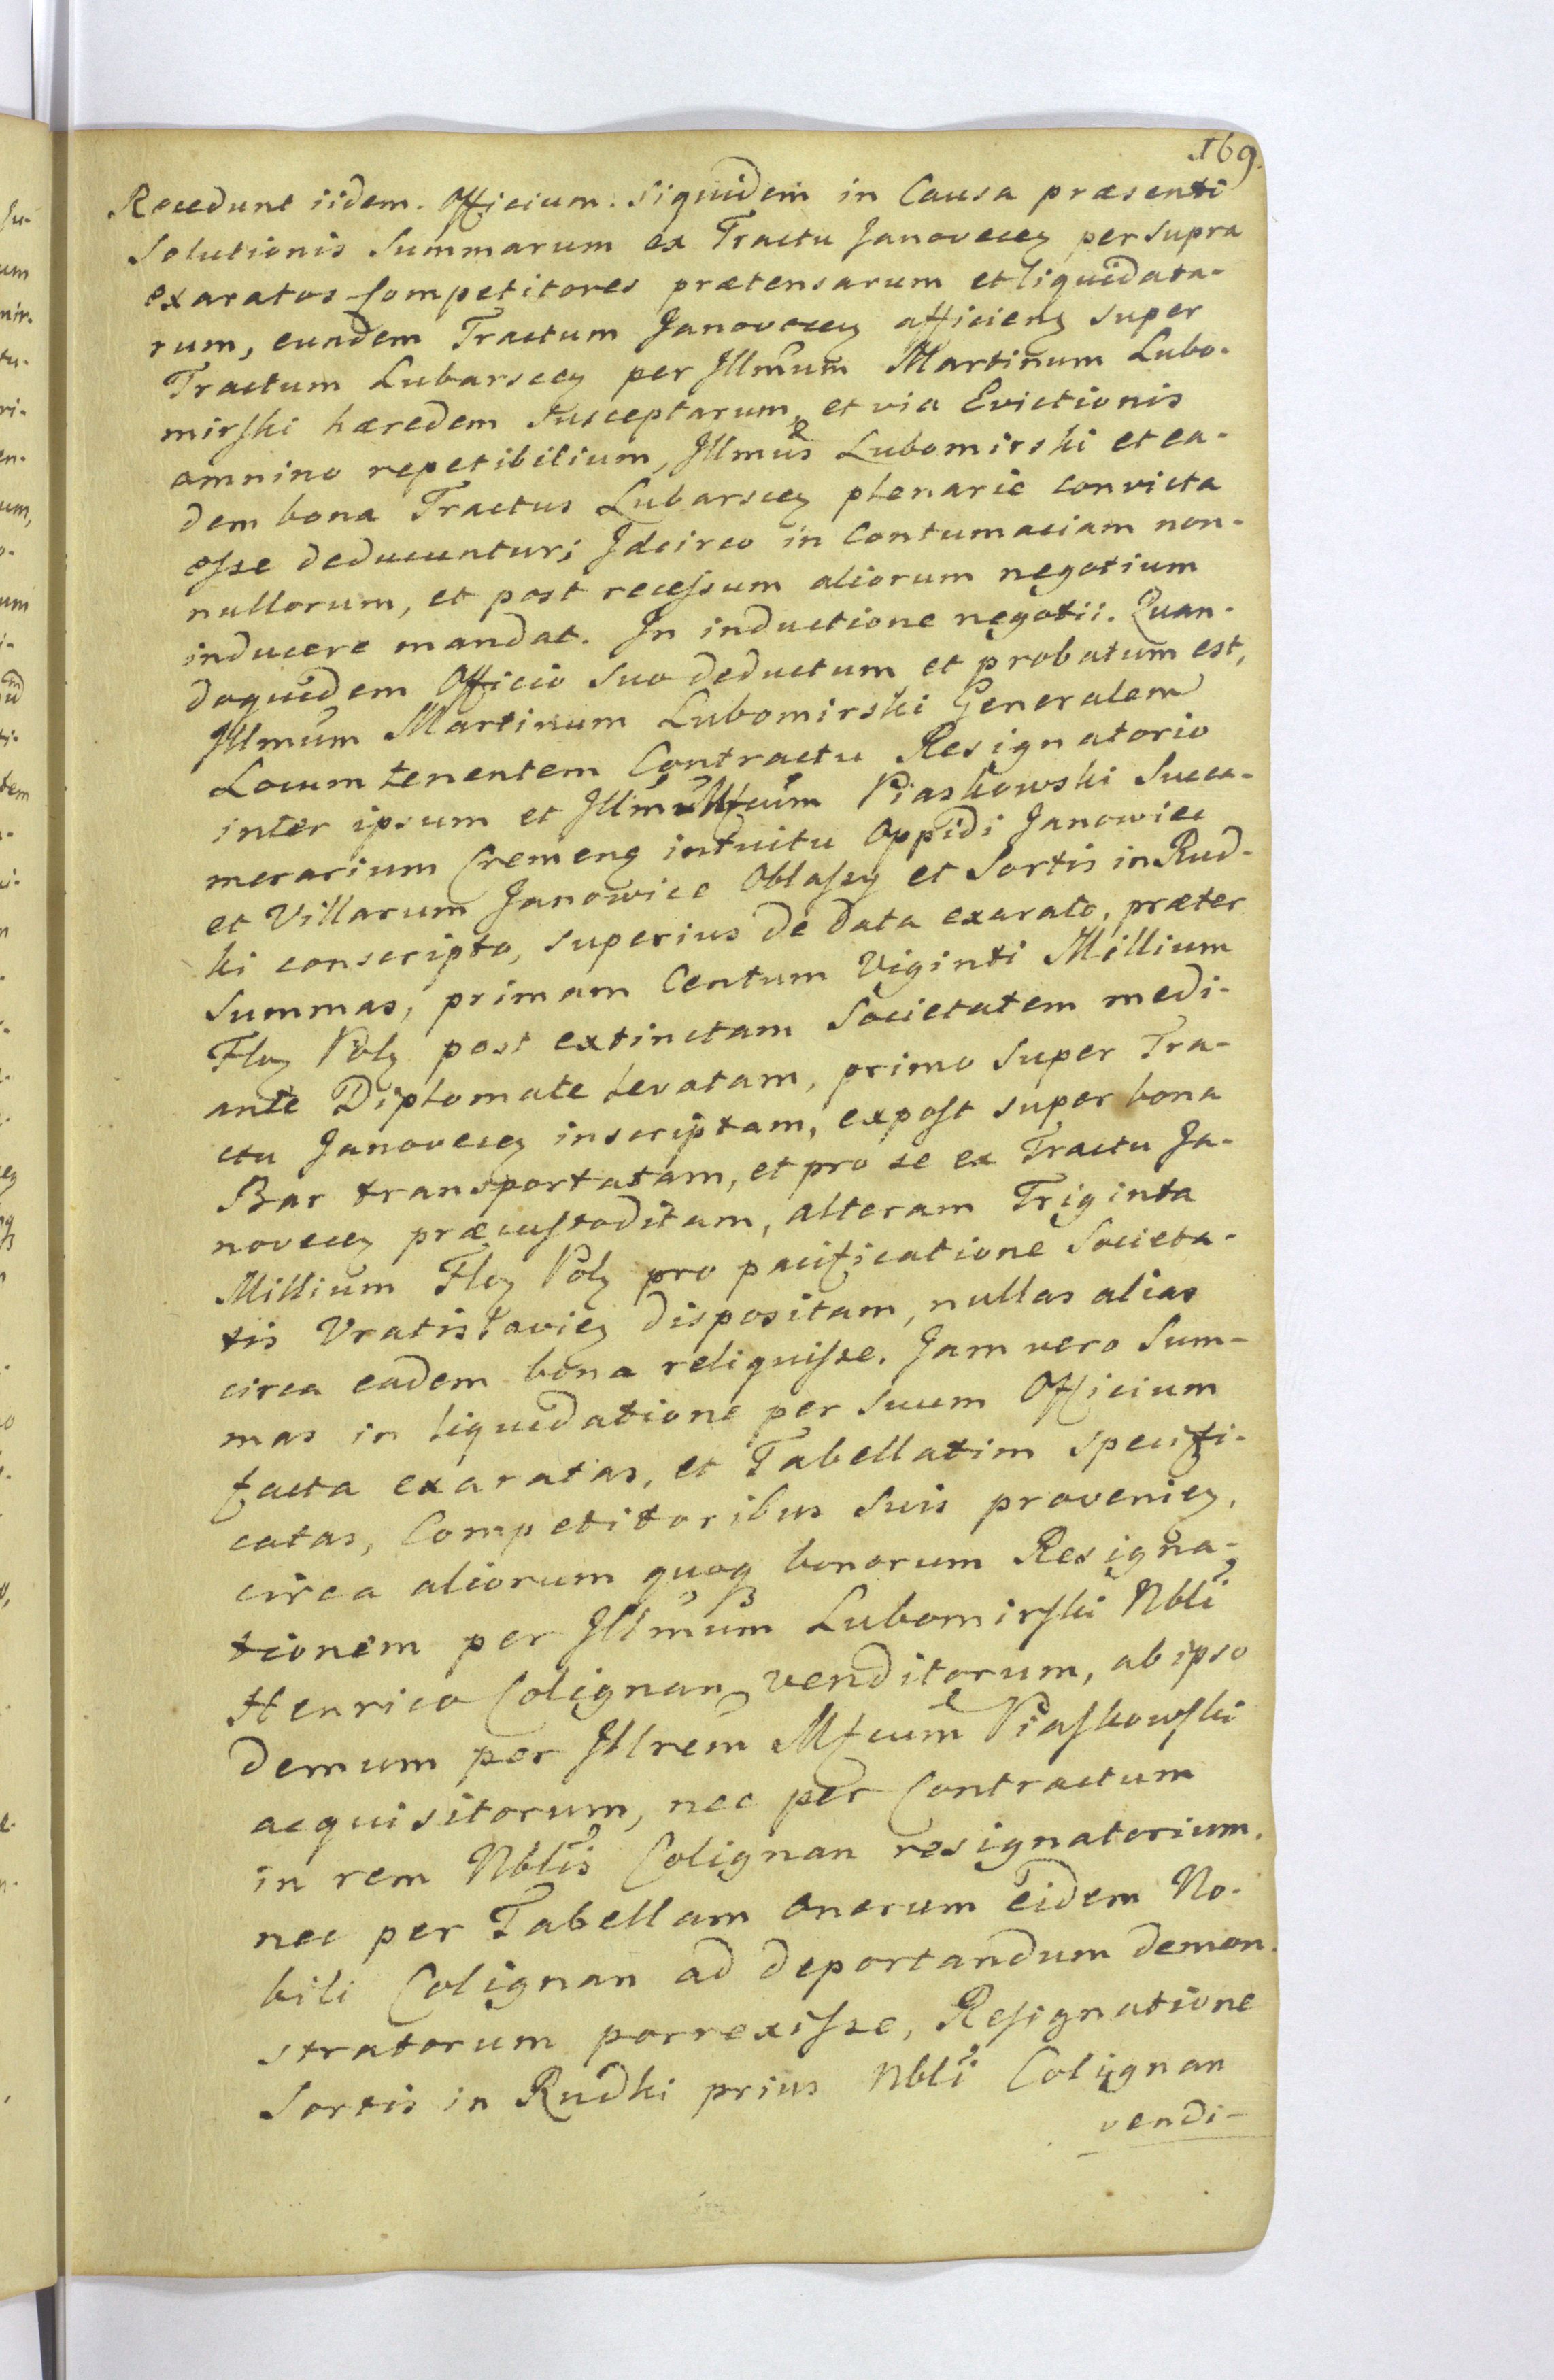 169.
Recedunt iidem. Officium. Siquidem in Causa præsenti
Solutionis Summarum ex Tractu Janovecen per supra
exaratos Competitores prætensarum et liquidata-
rum, eundem Tractum Janovecen afficien super
Tractum Lubarscen per Illmum Martinum Lubo-
mirski hæredem susceptarum, et via Evictionis
omnino repetibilium, Illmus Lubomirski et ea-
dem bona Tractus Lubarscen plenarie convicta
esse deducuntur; Idcirco in Contumaciam non-
nullorum, et post recessum aliorum negotium
inducere mandat. In inductione negotii. Quan-
doquidem Officio suo deductum et probatum est,
Illmum Martinum Lubomirski Generalem
Locum tenentem Contractu Resignatorio
inter ipsum et Mfcum Piaskowski Succa-
merarium Cremen intuitu Oppidi Janowiec
et Villarum Janowice Oblassy et Sortis in Rud-
ki conscripto, superius de data exarato, præter
Summas, primam Centum Viginti Millium
Flen Poln post extinctam Societatem medi-
ante Diplomate levatam, primo super Tra-
ctu Janovecen inscriptam, expost super bona
Bar transportatam, et pro se ex Tractu Ja-
novecen præcustoditam, alteram Triginta
Millium Flen Poln pro pacificatione Societa-
tis Vratislavien dispositam, nullas alias
circa eadem bona reliquisse. Jam vero Sum-
mas in liquidatione per suum Officium
facta exaratas, et Tabellatim specifi-
catas, Competitoribus suis provenien,
circa aliorum quoq bonorum Resigna-
tionem per Illmum Lubomirski Nbli
Henrico Colignan venditorum, ab ipso
demum per Illrem Mfcum Piaskowski
acquisitorum, nec per Contractum
in rem Nblis Colignan resignatorium,
nec per Tabellam onerum eidem No-
bili Colignan ad deportandum demon-
stratorum porrexisse, Resignatione
Sortis in Rudki prius Nbli Colignan
vendi-